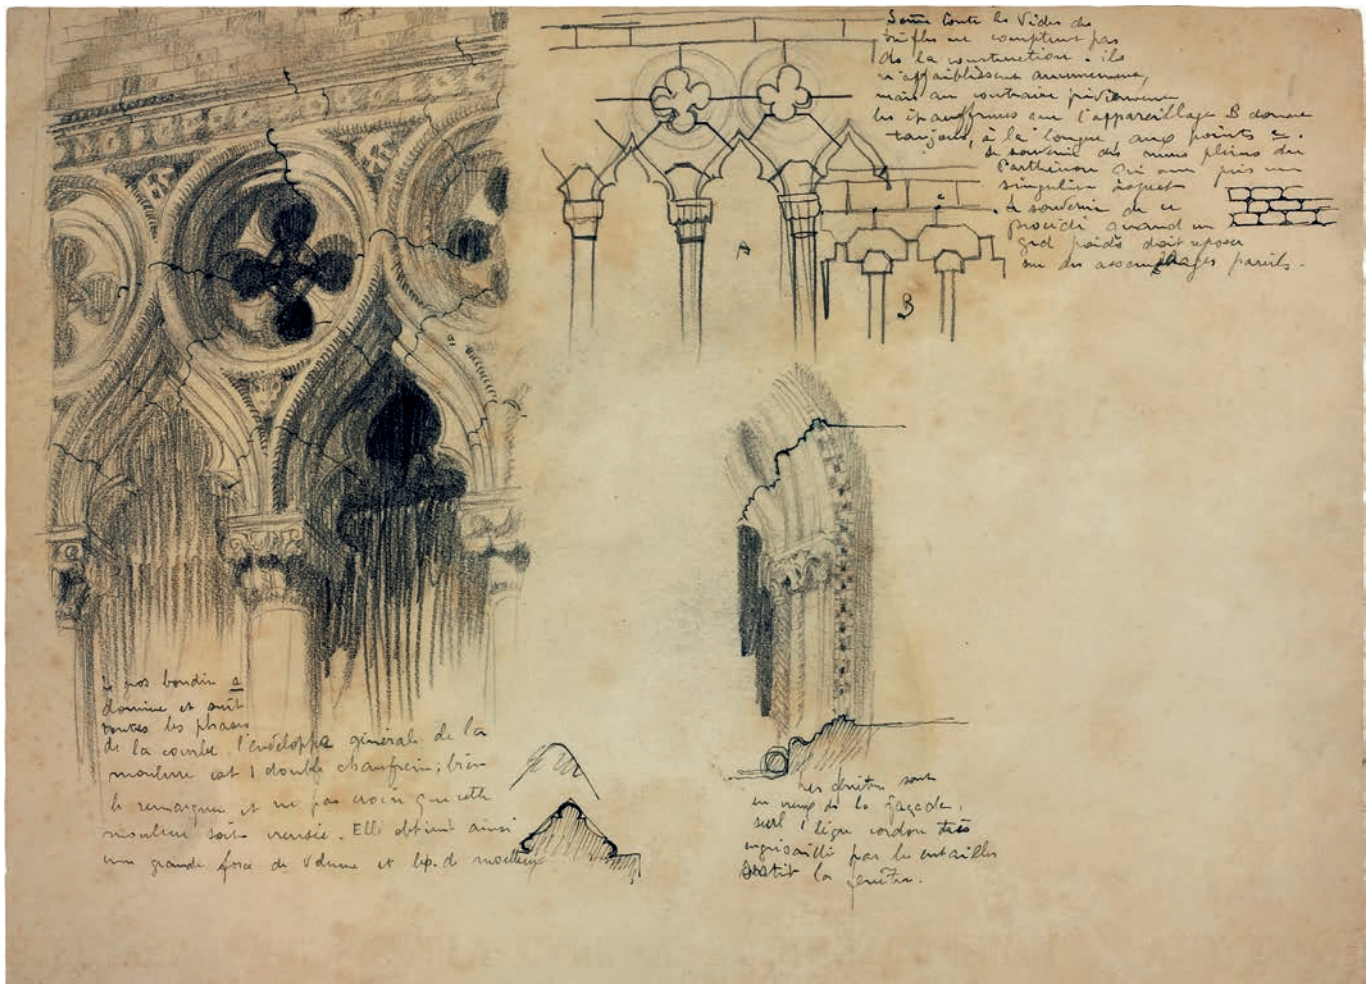 Somme toute les vides des
trèfles ne comptent pas
de la construction. ils
n'affaiblissent aucunement,
mais au contraire
les sur l'appareillage B donne
toujours, à la longue aux points c.
se souvenir des murs pleins du
Parthénon qui ont pris un
singulier aspect
se souvenir de ce
procédé quand un
gd poids doit reposer
sur des assemblages pareils.
c
A
B
a
Le gros boudin a
domine et suit
toutes les phases
de la courbe l'enveloppe générale de la
moulure est 1 double chanfrein; bien
le remarquer et ne pas croire que cette
moulure soit creusée. Elle obtient ainsi
une grande force de volume et bp. de moelleux
Les fenêtres sont
en nu de la façade,
seul 1 légr cordon très
engrisaillé par les entailles
sertit la fenêtre.